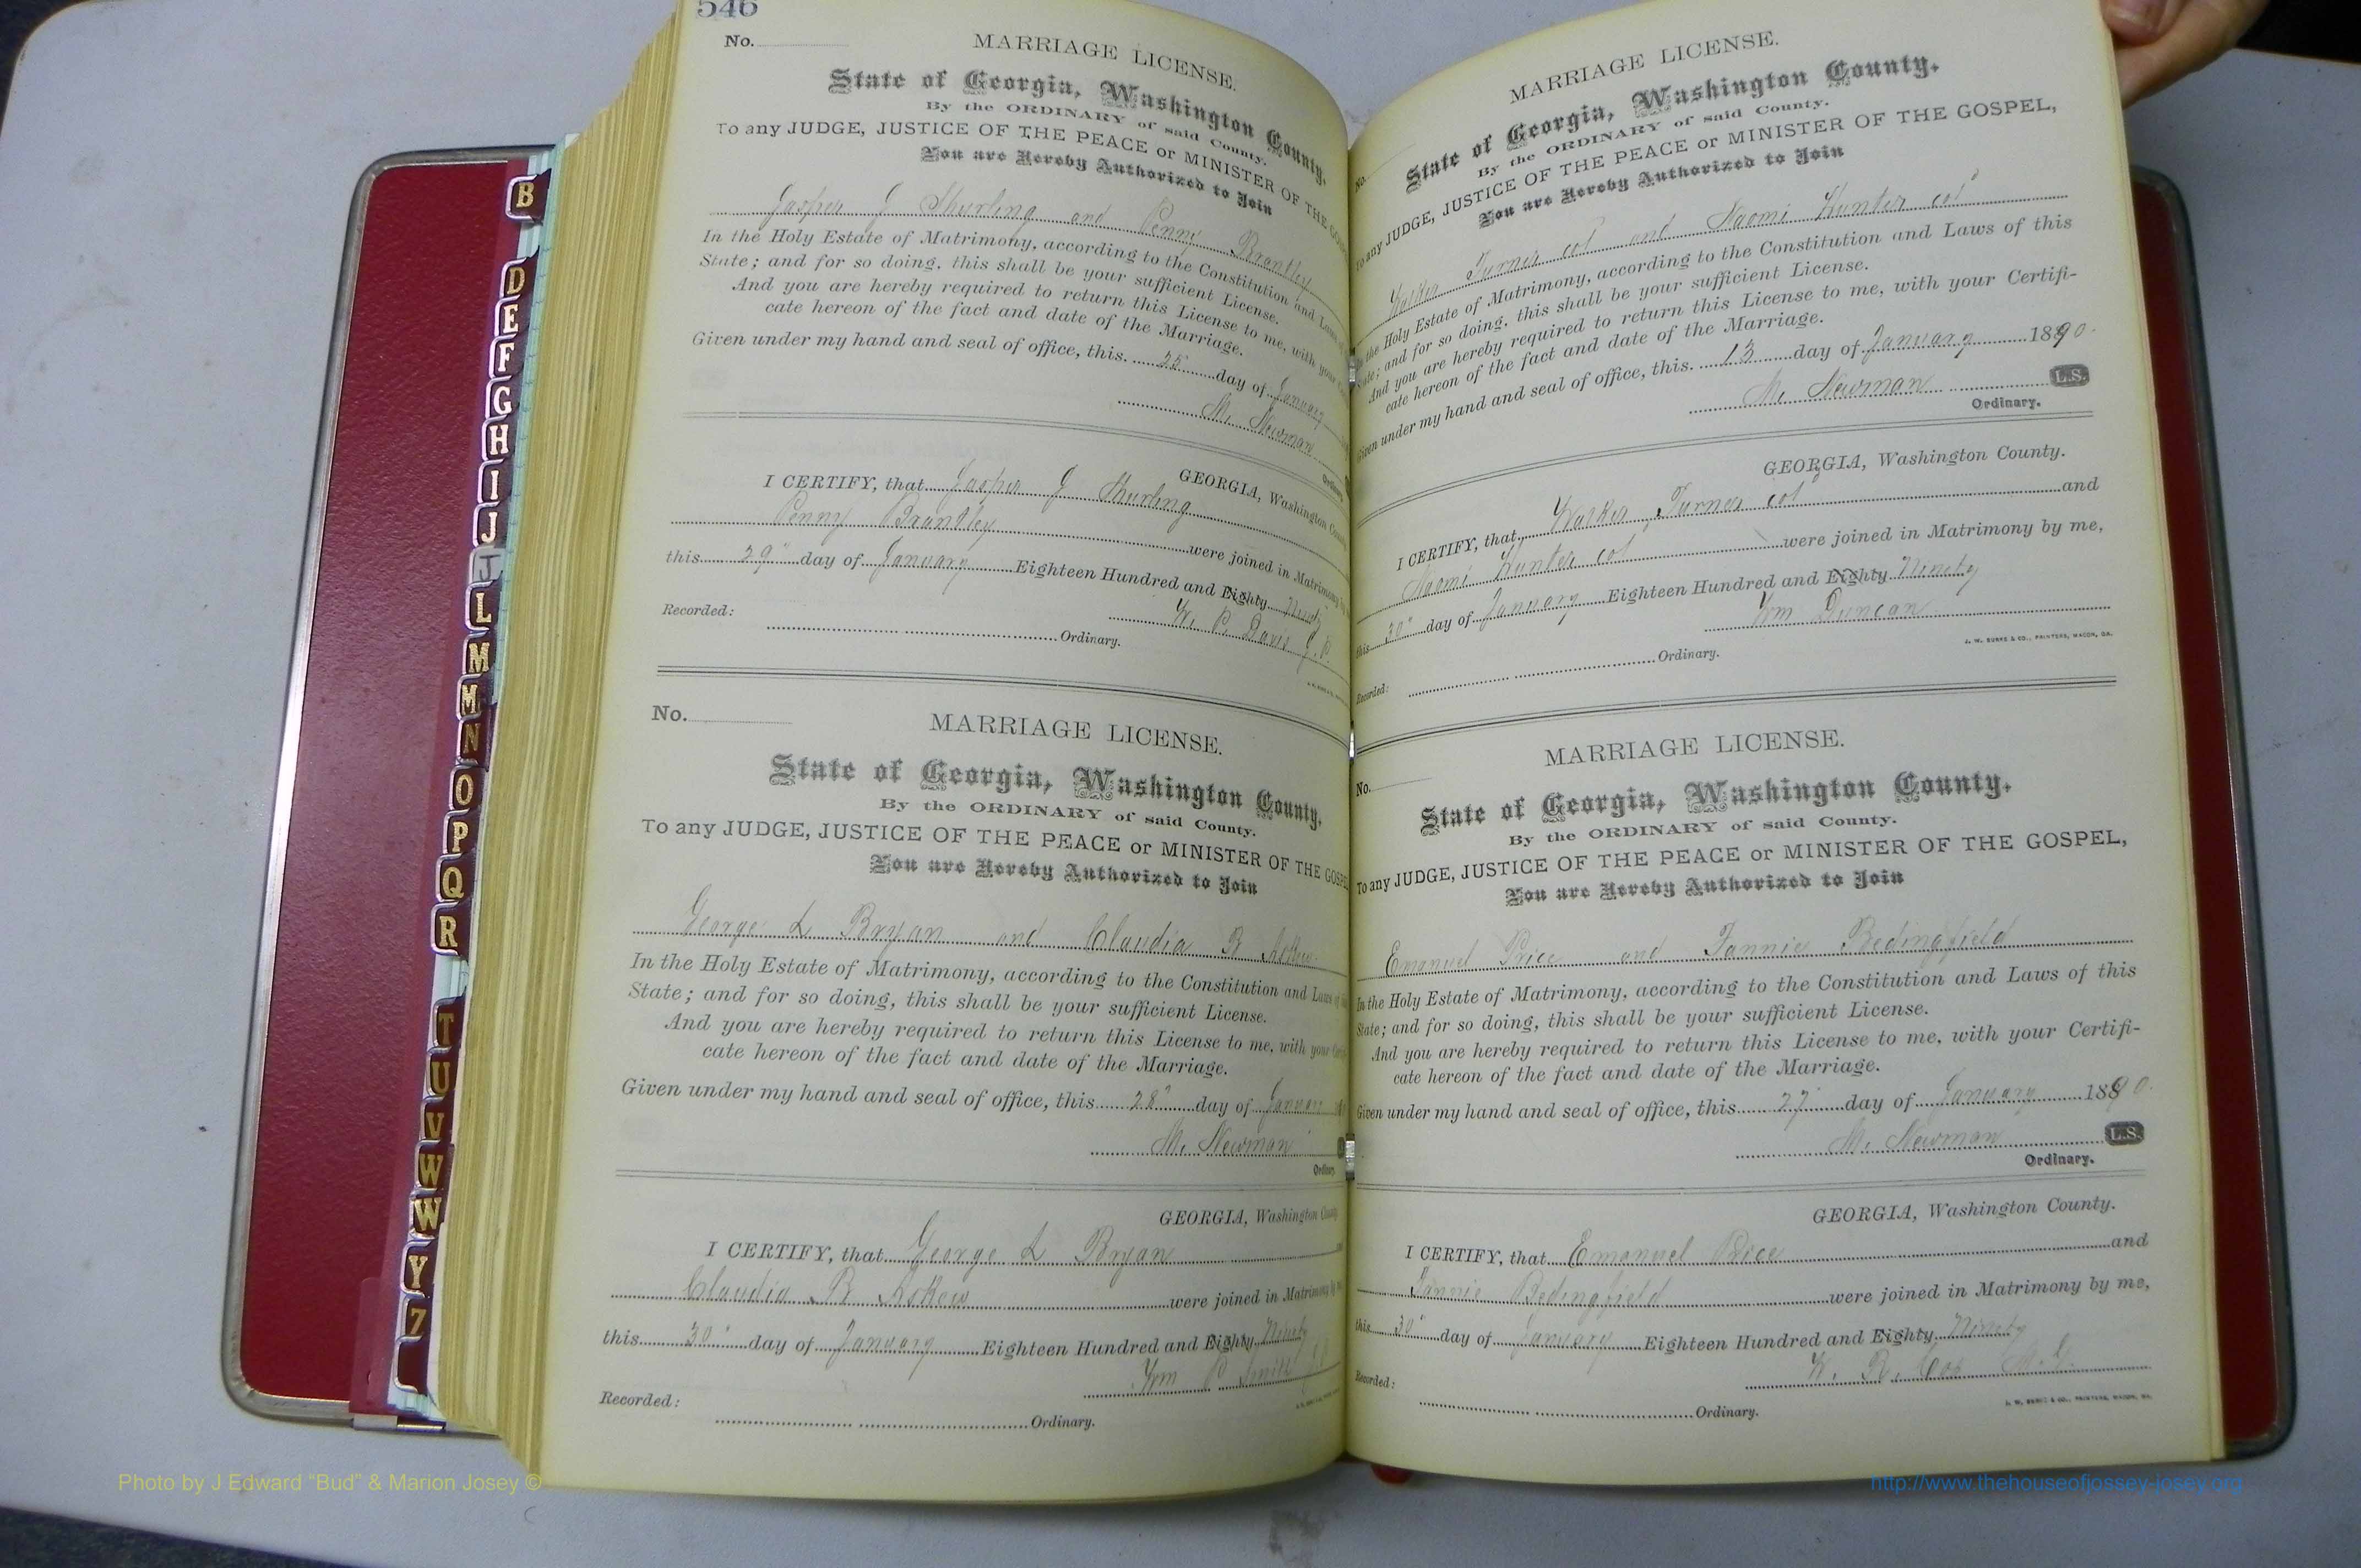 546
No.
MARRIAGE LICENSE.
State of Georgia, Washington County.
By the ORDINARY of said County.
To any JUDGE, JUSTICE OF THE PEACE or MINISTER OF THE
You are Hereby Authorized to Join
Jasper J Thurling and Penny Brantley
In the Holy Estate of Matrimony, according to the Constitution and Laws of
State; and for so doing, this shall be your sufficient License.
And you are hereby required to return this License to me, with your
cate hereon of the fact and date of the Marriage.
Given under my hand and seal of office, this 25" day of January
M. Newman
Ordinary
GEORGIA, Washington County
I CERTIFY, that Jasper J Thurling
Penny Brantley were joined in Matrimony
this 29" day of January Eighteen Hundred and Eighty Ninety
W. P. Davis J. P.
Recorded:
Ordinary.
No.
MARRIAGE LICENSE.
State of Georgia, Washington County.
By the ORDINARY of said County.
To any JUDGE, JUSTICE OF THE PEACE or MINISTER OF THE GOSPEL
You are Hereby Authorized to Join
George L Bryan and Claudia R Askew
In the Holy Estate of Matrimony, according to the Constitution and Laws
State; and for so doing, this shall be your sufficient License.
And you are hereby required to return this License to me, with your
cate hereon of the fact and date of the Marriage.
Given under my hand and seal of office, this 28" day of January
M. Newman
Ordinary
GEORGIA, Washington County
I CERTIFY, that George L Bryan
Claudia R Askew were joined in Matrimony by me
this 30" day of January Eighteen Hundred and Eighty Ninety
Wm P Smith
Recorded:
Ordinary.
No.
MARRIAGE LICENSE.
State of Georgia, Washington County.
By the ORDINARY of said County.
To any JUDGE, JUSTICE OF THE PEACE or MINISTER OF THE GOSPEL,
You are Hereby Authorized to Join
Walker Turner col and Naomi Hunter col
In the Holy Estate of Matrimony, according to the Constitution and Laws of this
State; and for so doing, this shall be your sufficient License.
And you are hereby required to return this License to me, with your Certifi-
cate hereon of the fact and date of the Marriage.
Given under my hand and seal of office, this 13 day of January 1890.
M. Newman L.S.
Ordinary.
GEORGIA, Washington County.
I CERTIFY, that Walker Turner col and
Naomi Hunter col were joined in Matrimony by me,
this 30" day of January Eighteen Hundred and Eighty Ninety
Wm Duncan
J. W. BURKE & CO., PRINTERS, MACON, GA.
Recorded: Ordinary.
No.
MARRIAGE LICENSE.
State of Georgia, Washington County.
By the ORDINARY of said County.
To any JUDGE, JUSTICE OF THE PEACE or MINISTER OF THE GOSPEL,
You are Hereby Authorized to Join
Emanuel Price and Fannie Bedingfield
In the Holy Estate of Matrimony, according to the Constitution and Laws of this
State; and for so doing, this shall be your sufficient License.
And you are hereby required to return this License to me, with your Certifi-
cate hereon of the fact and date of the Marriage.
Given under my hand and seal of office, this 27 day of January 1890.
M. Newman L.S.
Ordinary.
GEORGIA, Washington County.
I CERTIFY, that Emanuel Price and
Fannie Bedingfield were joined in Matrimony by me,
this 30" day of January Eighteen Hundred and Eighty Ninety
W. R. Cox M.G.
J. W. BURKE & CO., PRINTERS, MACON, GA.
Recorded:
Ordinary.
B
D
E
F
G
H
I
J
J
L
M
M
N
O
P
Q
R
T
U
V
W
W
Y
Z
Photo by J Edward “Bud” & Marion Josey ©
http://www.thehouseofjossey-josey.org